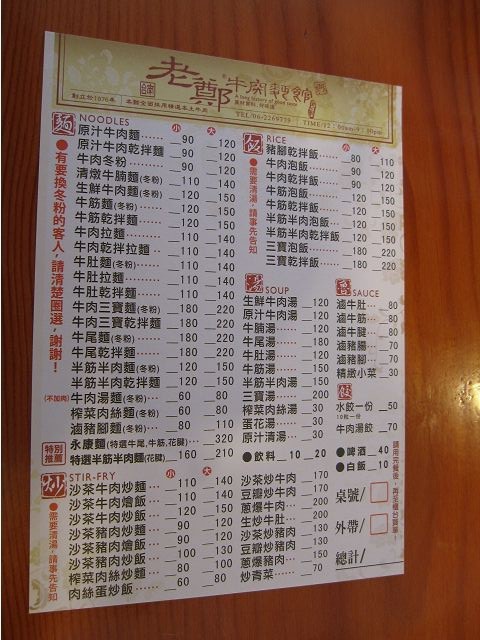 老鄭牛肉麵館
a long history of good taste
創立於1976年
本麵全面採用精選本土牛肉
TEL/06-2269739
麵 NOODLES 小 大
原汁牛肉麵 90 120
原汁牛肉乾拌麵 90 120
牛肉冬粉 90 120
清燉牛腩麵(冬粉) 110 140
生鮮牛肉麵(冬粉) 120 150
牛筋麵(冬粉) 90 120
牛筋乾拌麵 90 120
牛肉拉麵 110 140
牛肉乾拌拉麵 110 140
牛肚麵(冬粉) 110 140
牛肚拉麵 110 140
牛肚乾拌麵 110 140
牛肉三寶麵(冬粉) 180 220
牛肉三寶乾拌麵 180 220
牛尾麵(冬粉) 180 220
牛尾乾拌麵 180 220
半筋半肉麵(冬粉) 90 120
半筋半肉乾拌麵 90 120
(不加肉) 牛肉湯麵(冬粉) 60 80
榨菜肉絲麵(冬粉) 60 80
滷豬腳麵(冬粉) 80 110
特別推薦
永康麵(特選牛尾,牛筋,花腱) 320
特選半筋半肉麵(花腱) 160 210
●有要換冬粉的客人,請清楚圈選,謝謝!
炒 STIR-FRY 小 大
沙茶牛肉炒麵 110 140
沙茶牛肉燴飯 110 140
沙茶牛肉炒飯 90 120
沙茶豬肉炒麵 90 120
沙茶豬肉燴飯 100 130
沙茶豬肉炒飯 80 110
榨菜肉絲炒麵 60 80
肉絲蛋炒飯 60 80
●需要清湯,請事先告知
沙茶炒牛肉 170
豆瓣炒牛肉 170
蔥爆牛肉 200
生炒牛肚 200
沙茶炒豬肉 130
豆瓣炒豬肉 130
蔥爆豬肉 150
炒青菜 50
飯 RICE 小 大
豬腳乾拌飯 80 110
牛肉泡飯 90 120
牛肉乾拌飯 90 120
牛筋泡飯 90 120
牛筋乾拌飯 90 120
半筋半肉泡飯 90 120
半筋半肉乾拌飯 90 120
三寶泡飯 180 220
三寶乾拌飯 180 220
●需要清湯,請事先告知
湯 SOUP
生鮮牛肉湯 120
原汁牛肉湯 120
牛腩湯 150
牛尾湯 180
牛肚湯 150
牛筋湯 150
半筋半肉湯 150
三寶湯 200
榨菜肉絲湯 30
蛋花湯 30
原汁清湯 30
●飲料 10 20
滷 SAUCE
滷牛肚 80
滷牛筋 80
滷牛腱 80
滷豬腸 70
滷豬腳 70
精燉小菜 30
餃
水餃一份 50
10粒一份
牛肉湯餃 70
●啤酒 40
●白飯 10
請用完餐後,再至櫃台買單!
桌號/
外帶/
總計/